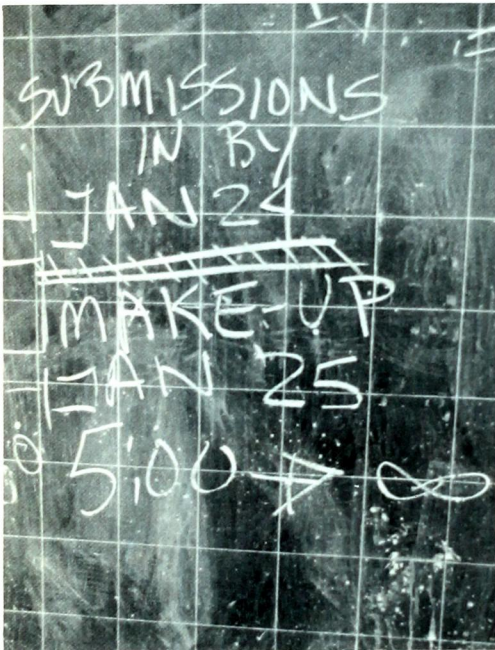 SUBMISSIONS
IN BY
JAN 24
MAKE-UP
JAN 25
5:00 → ∞